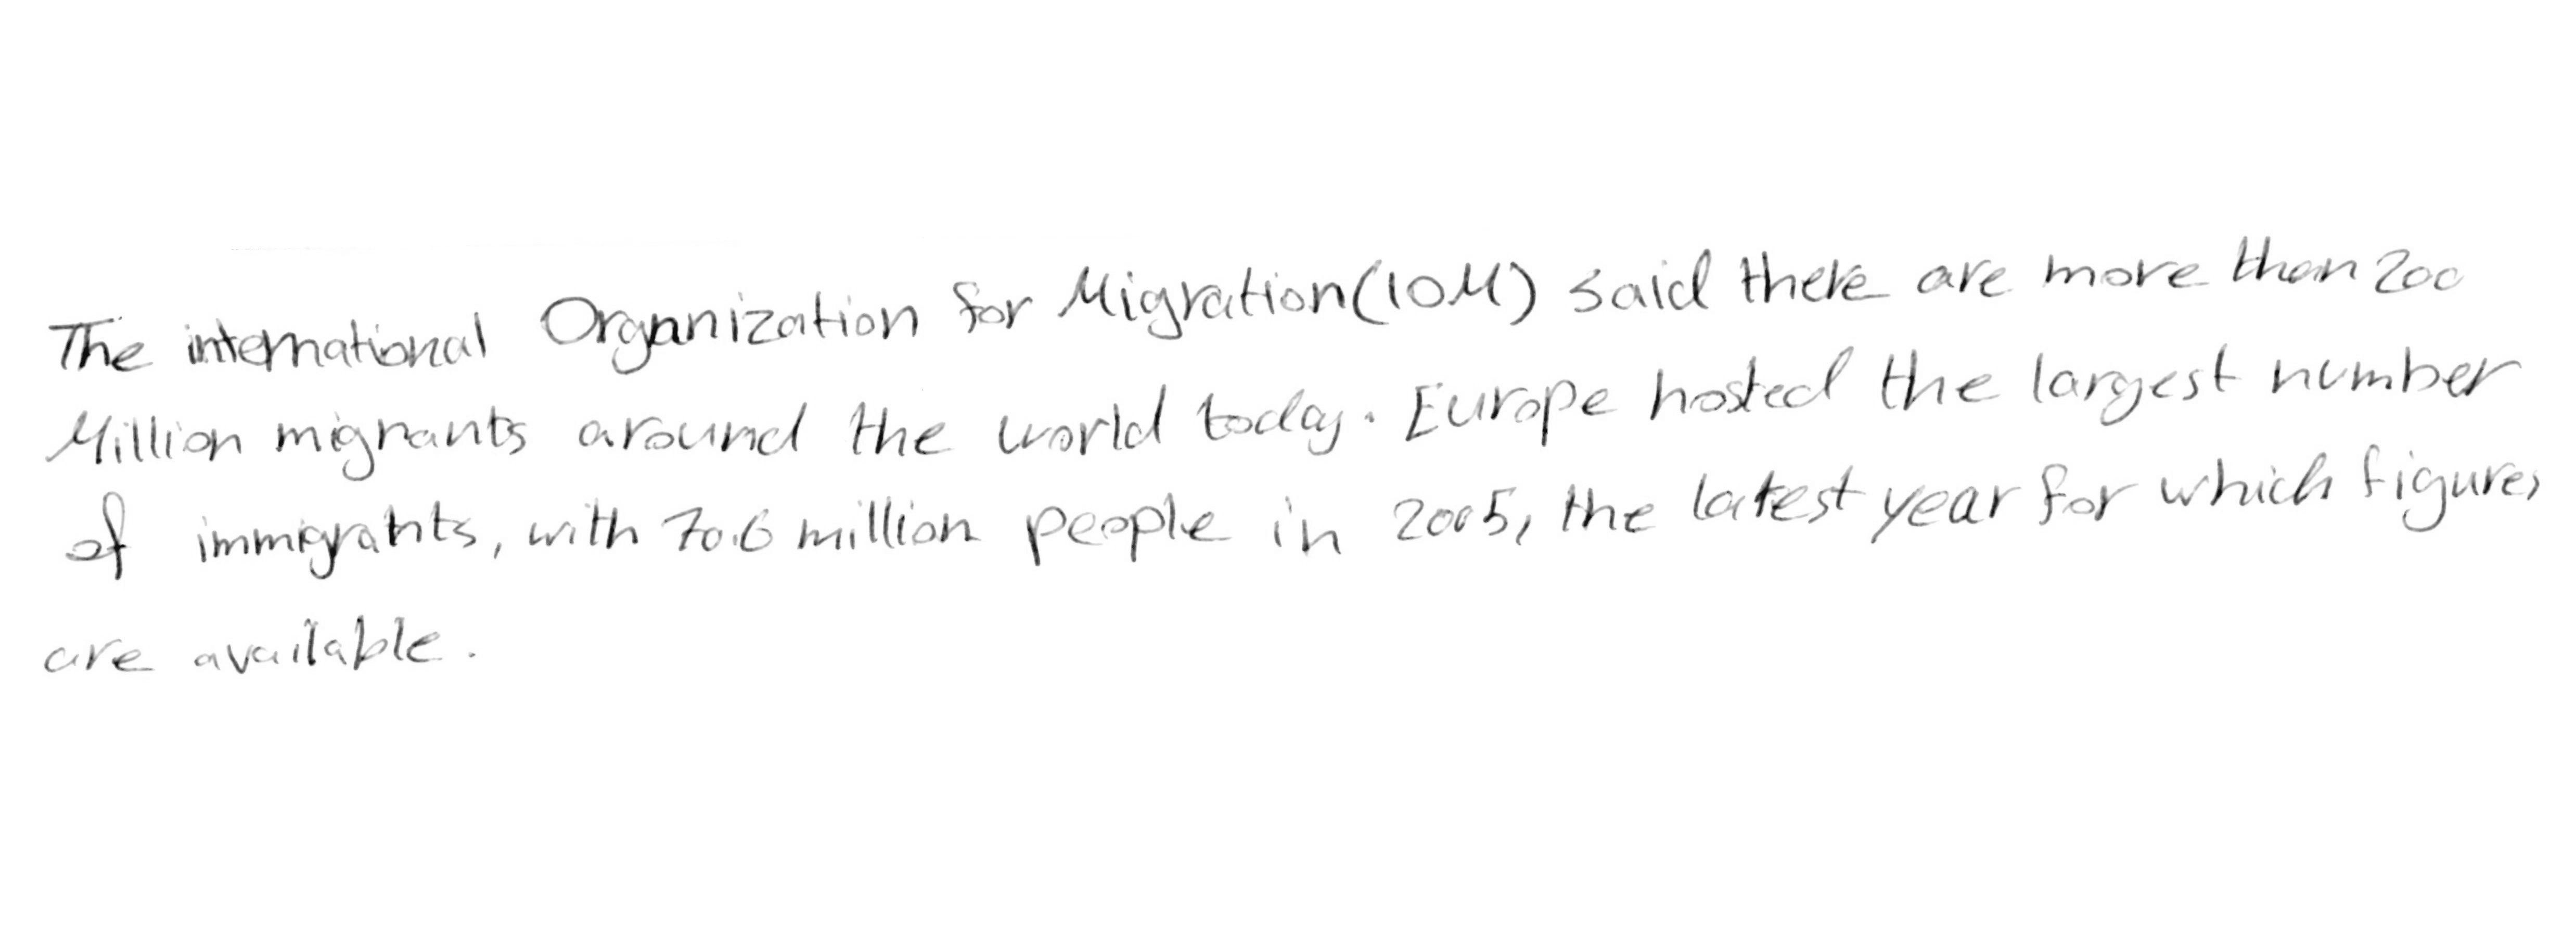 The international Organization for Migration (IOM) said there are more than 200
Million migrants around the world today. Europe hosted the largest number
of immigrants, with 70.6 million people in 2005, the latest year for which figures
are available.